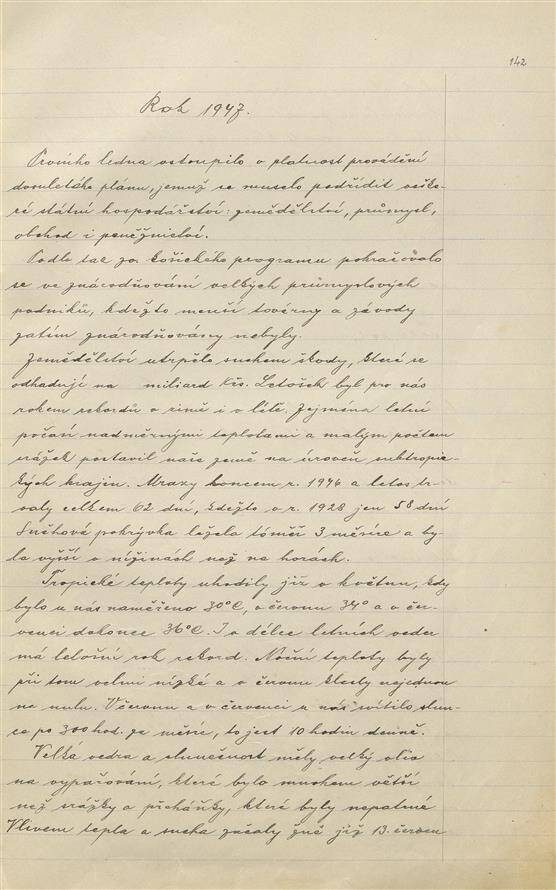 142
Rok 1947.
Prvního ledna vstoupilo v platnost provádění
dvouletého plánu, jemuž se muselo podřídit veške-
ré státní hospodářství: zemědělství, průmysl,
obchod i peněžnictví.
Podle tak zv. košického programu pokračovalo
se ve znárodňování velkých průmyslových
podniků, kdežto menší továrny a závody
zatím znárodňovány nebyly.
Zemědělství utrpělo suchem škody, které se
odhadují na miliard Kčs. Letošek byl pro nás
rokem rekordů v zimě i v létě. Zejména letní
počasí nadměrnými teplotami a malým počtem
srážek postavil naše země na úroveň subtropic-
kých krajin. Mrazy koncem r. 1946 a letos tr-
valy celkem 62 dní, kdežto v r. 1928 jen 58 dní
Sněhová pokrývka ležela téměř 3 měsíce a by-
la vyšší v nížinách než na horách.
Tropické teploty uhodily již v květnu, kdy
bylo u nás naměřeno 30°C, v červnu 34° a v čer-
venci dokonce 36°C. I v délce letních veder
má letošní rok rekord. Noční teploty byly
při tom velmi nízké a v červnu klesly nejednou
na nulu. V červnu a v červenci u nás svítilo slun-
ce po 300 hod. za měsíc, to jest 10 hodin denně.
Velká vedra a slunečnost měly velký vliv
na vypařování, které bylo mnohem větší
než srážky a přeháňky, které byly nepatrné
Vlivem tepla a sucha začaly žně již 13. červen